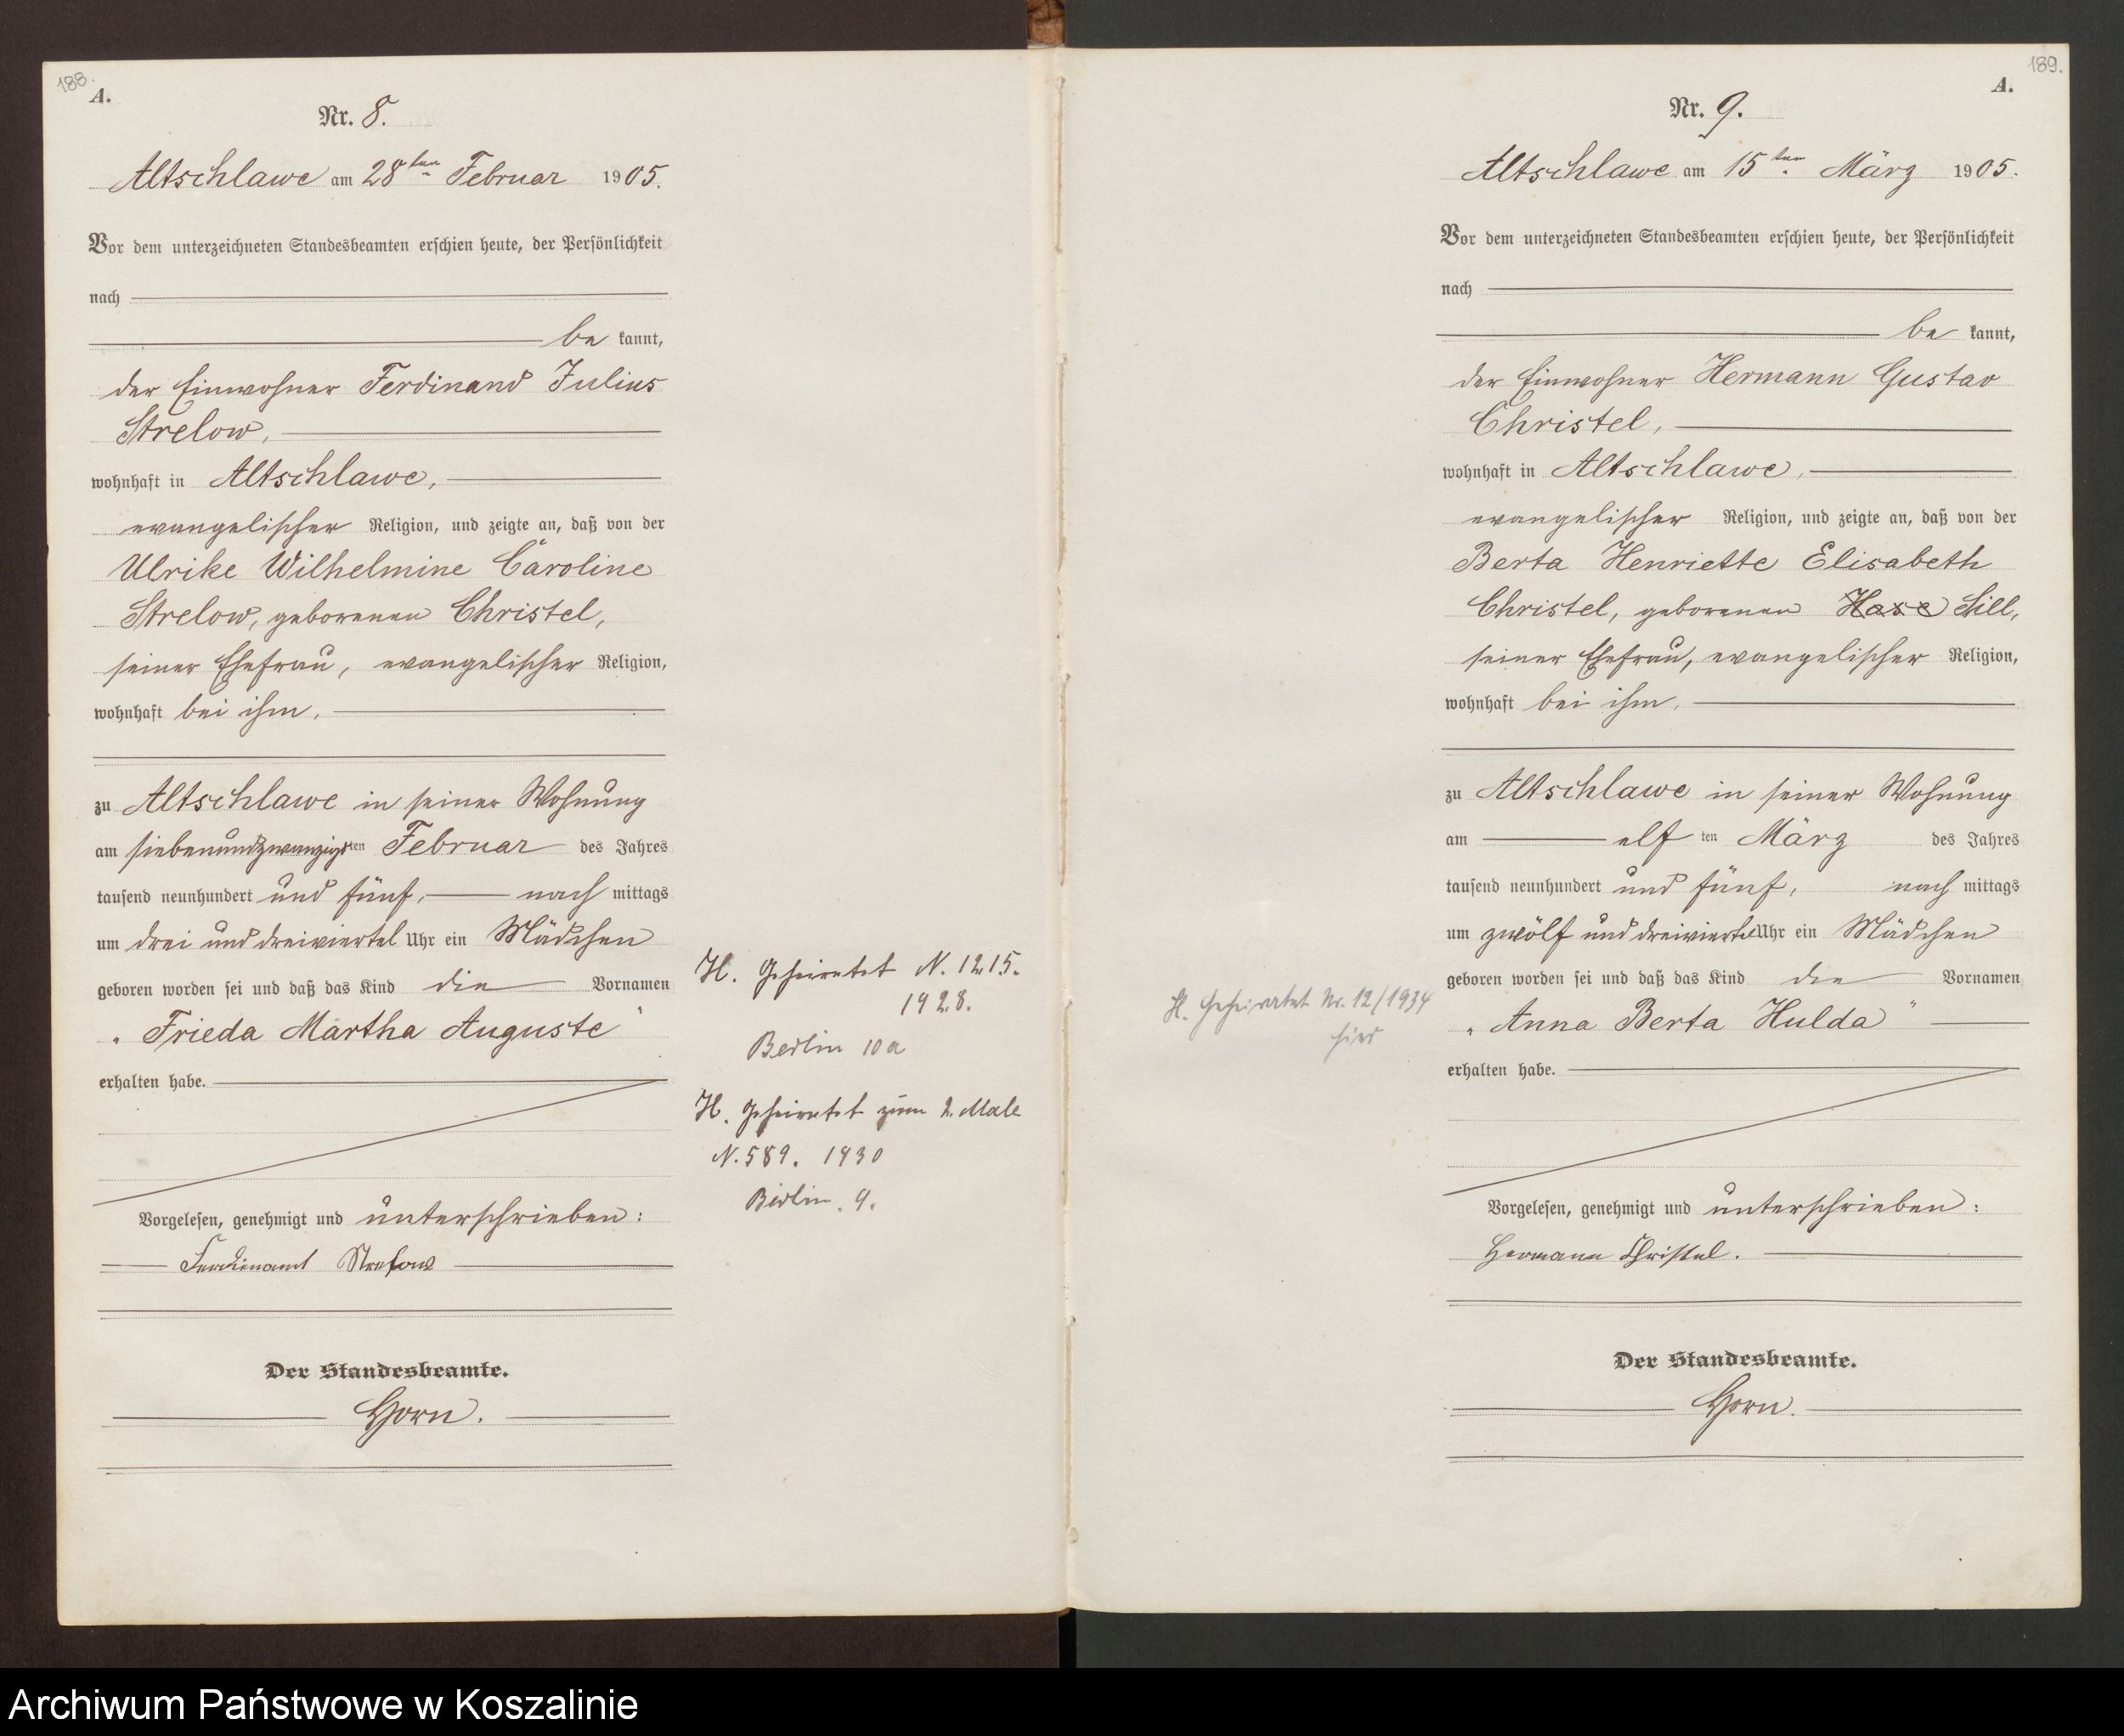 188.
A.
Nr. 8.
Altschlawe am 28ten Februar 1905.
Vor dem unterzeichneten Standesbeamten erschien heute, der Persönlichkeit
nach
be kannt,
der Einwohner Ferdinand Julius
Strelow,
wohnhaft in Altschlawe,
evangelischer Religion, und zeigte an, daß von der
Ulrike Wilhelmine Caroline
Strelow, geborenen Christel,
seiner Ehefrau, evangelischer Religion,
wohnhaft bei ihm,
zu Altschlawe in seiner Wohnung
am siebenundzwanzigsten Februar des Jahres
tausend neunhundert und fünf, nach mittags
um drei und dreiviertel Uhr ein Mädchen
geboren worden sei und daß das Kind die Vornamen
"Frieda Martha Auguste"
erhalten habe.
Vorgelesen, genehmigt und unterschrieben:
Ferdinand Strelow
Der Standesbeamte.
Horn.
H. Geheiratet N. 1215.
1928.
Berlin 10a
H. Geheiratet zum 2. Male
N. 589. 1930
Berlin 9.
189.
A.
Nr. 9.
Altschlawe am 15ten März 1905.
Vor dem unterzeichneten Standesbeamten erschien heute, der Persönlichkeit
nach
be kannt,
der Einwohner Hermann Gustav
Christel,
wohnhaft in Altschlawe,
evangelischer Religion, und zeigte an, daß von der
Berta Henriette Elisabeth
Christel, geborenen Hase Sill,
seiner Ehefrau, evangelischer Religion,
wohnhaft bei ihm,
zu Altschlawe in seiner Wohnung
am elf ten März des Jahres
tausend neunhundert und fünf, nach mittags
um zwölf und dreiviertel Uhr ein Mädchen
geboren worden sei und daß das Kind die Vornamen
"Anna Berta Hulda"
erhalten habe.
Vorgelesen, genehmigt und unterschrieben:
Hermann Christel.
Der Standesbeamte.
Horn.
H. Geheiratet Nr. 12/1934
hier
Archiwum Państwowe w Koszalinie